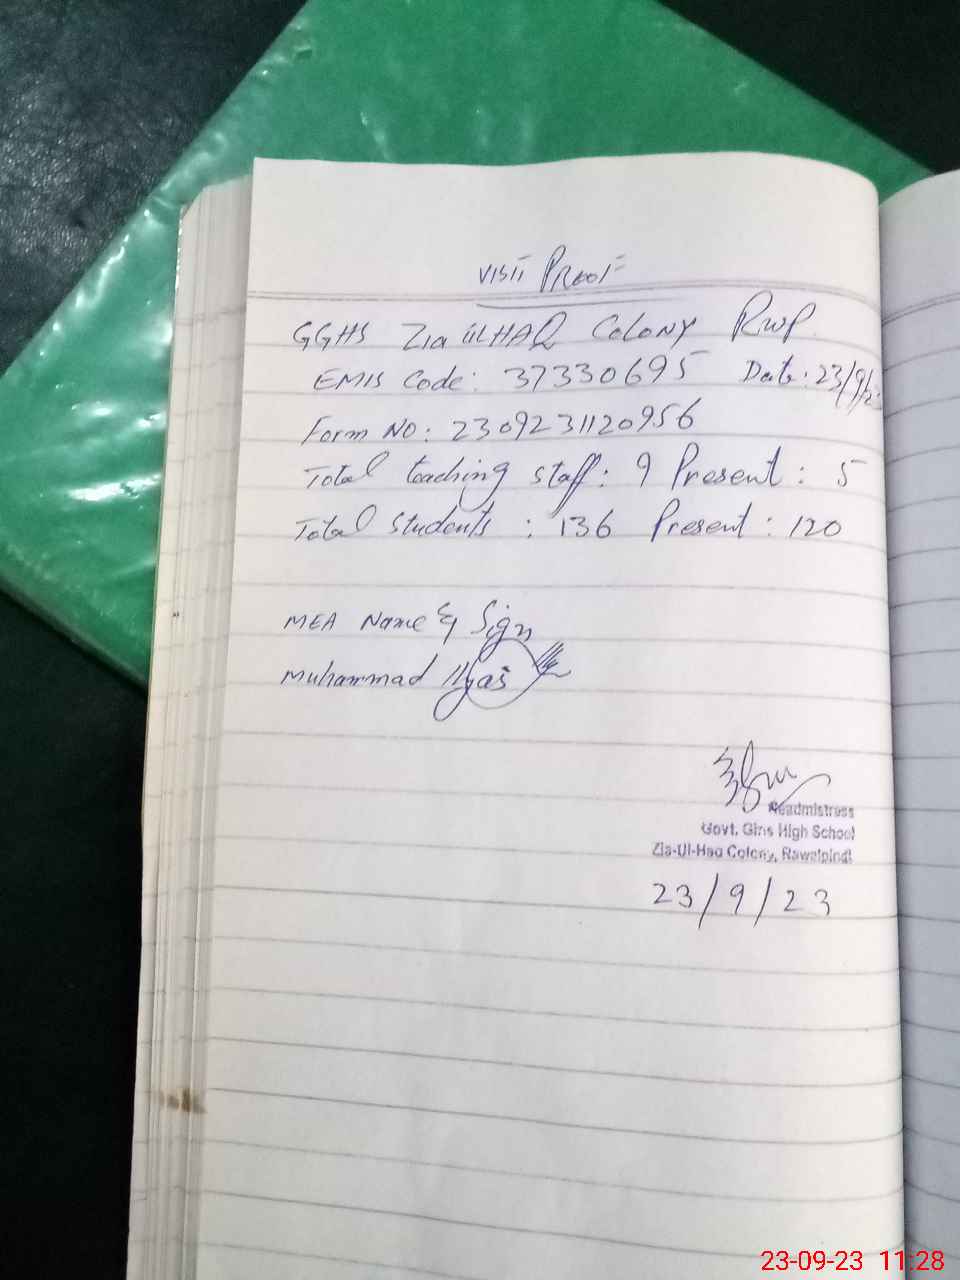 VISIT PROOF
GGHS Zia ULHAQ Colony RWP.
EMIS Code: 37330695 Date: 23/9/23
Form NO: 2309231120956
Total teaching staff: 9 Present: 5
Total Students : 136 Present: 120
MEA Name & Sign
Muhammad Ilyas
Headmistress
Govt. Girls High School
Zia-Ul-Haq Colony, Rawalpindi
23/9/23
23-09-23 11:28